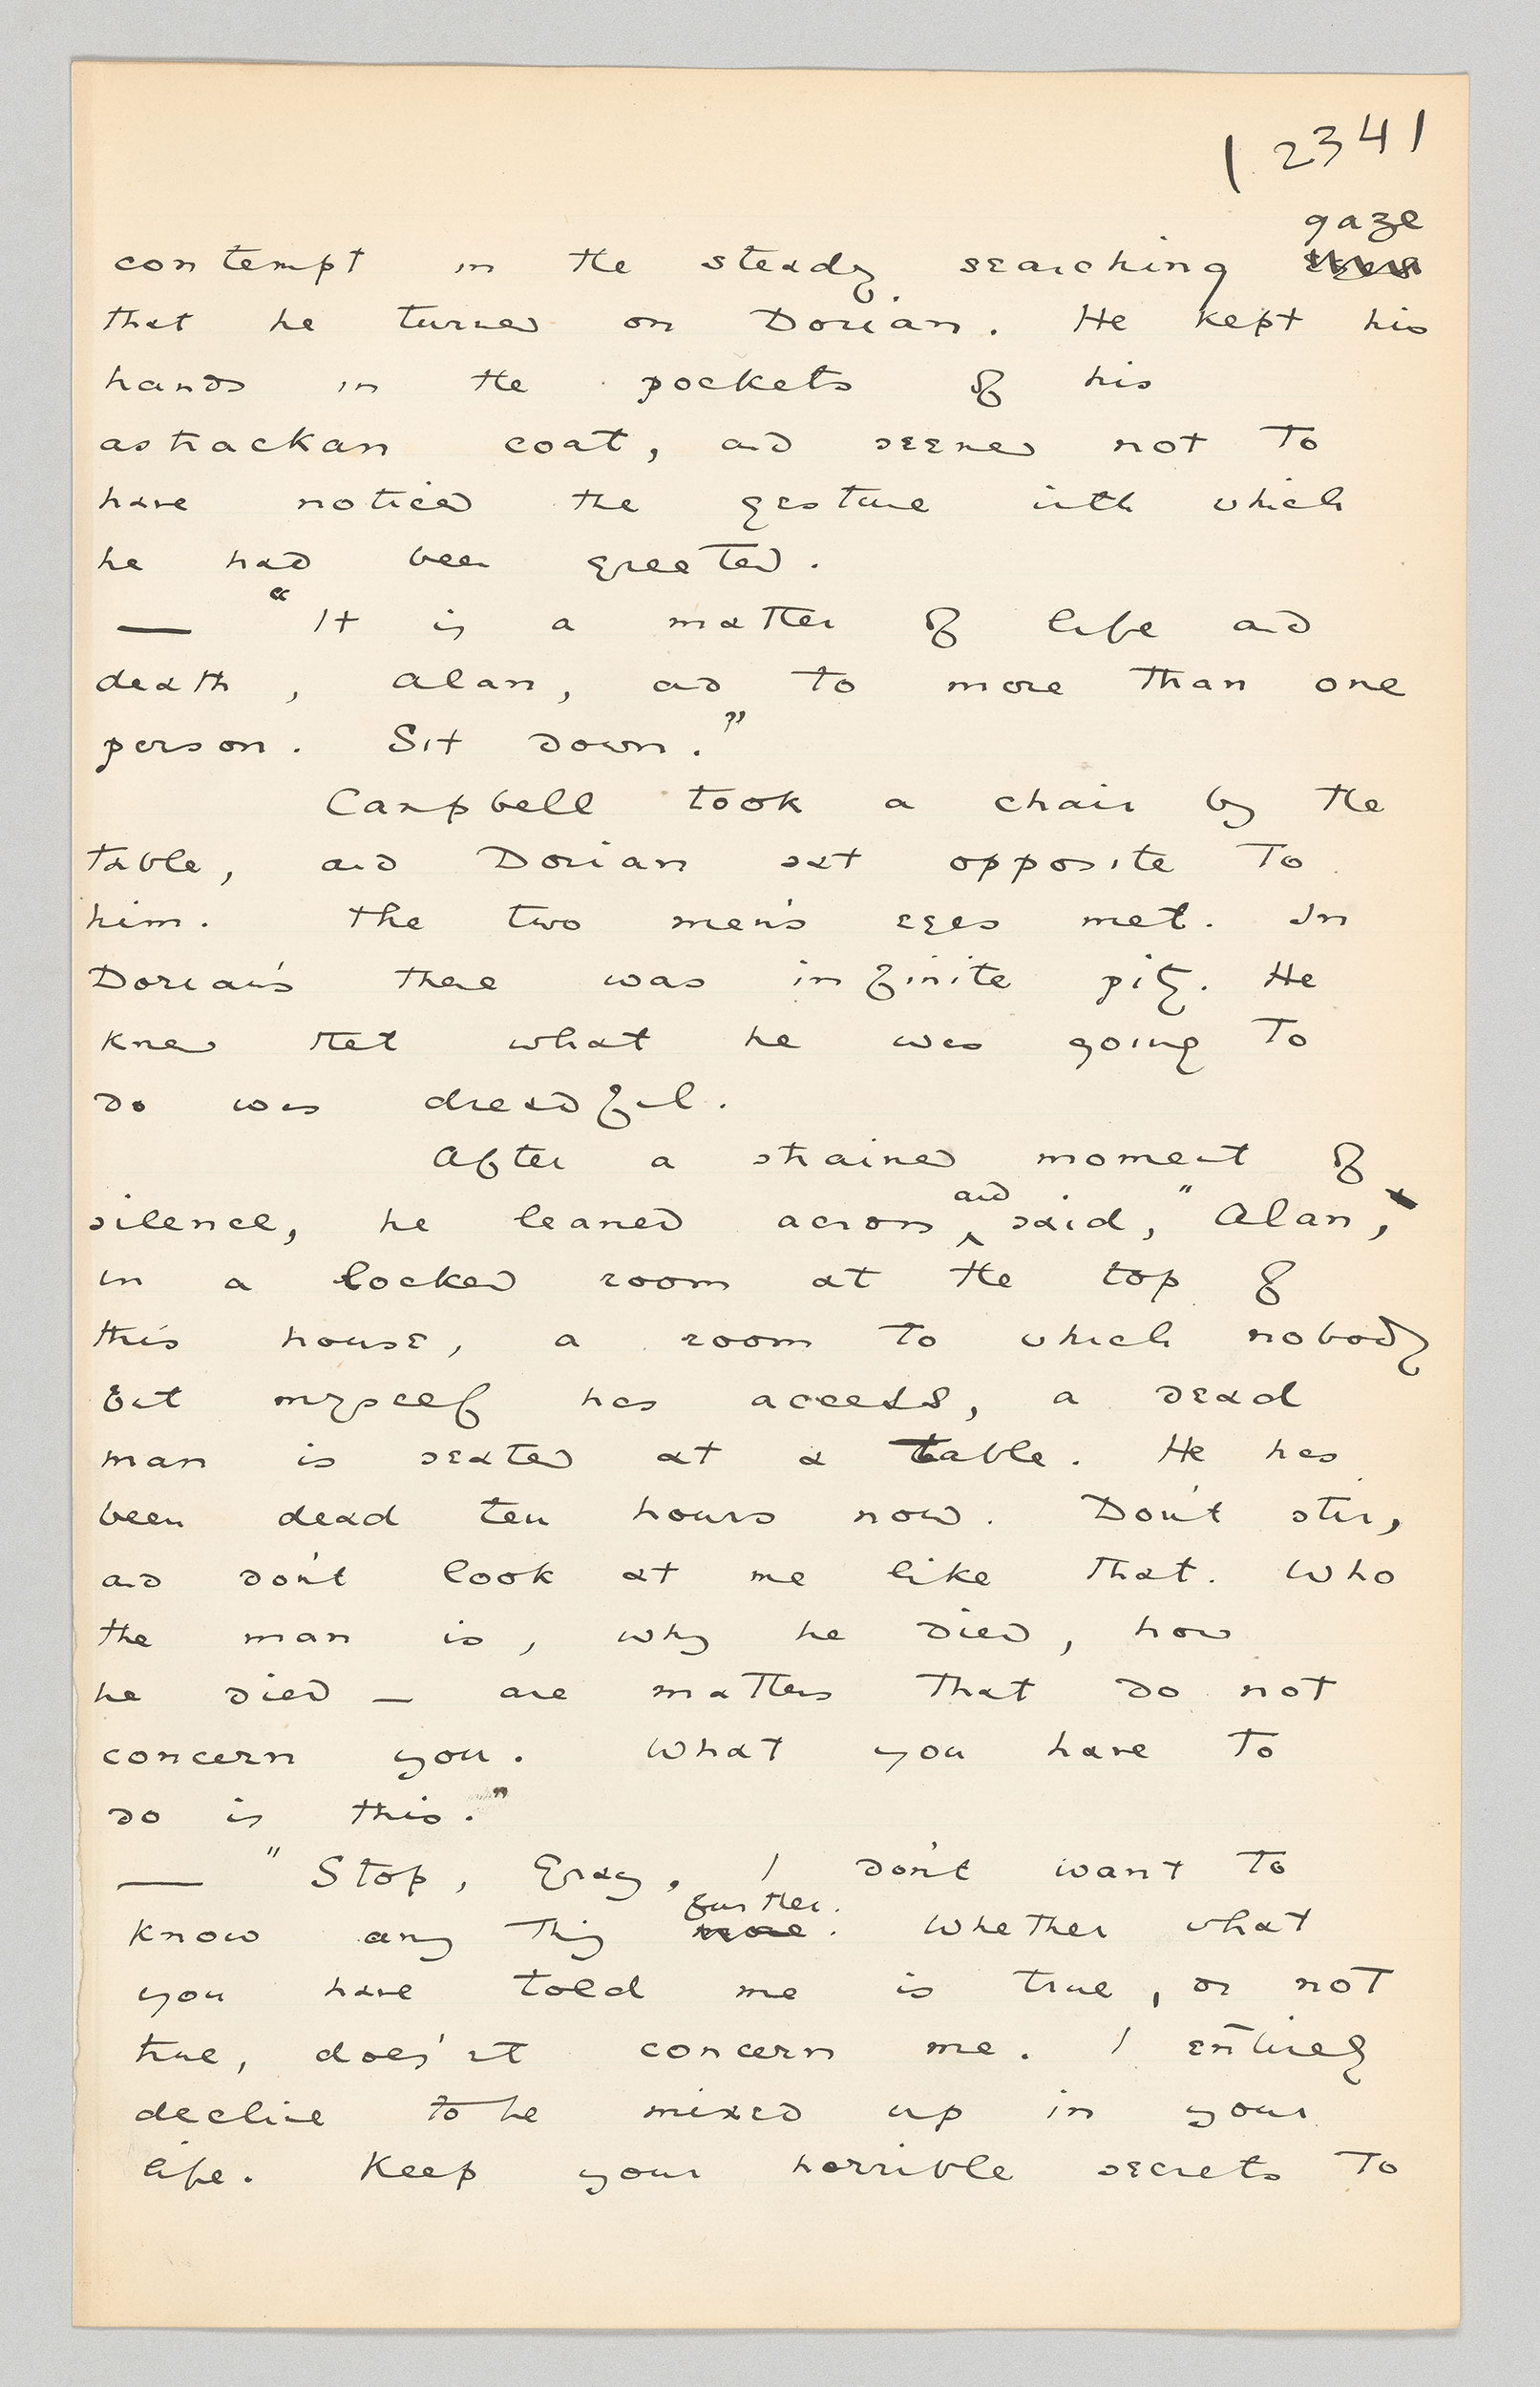 ( 234 )
gaze
contempt in the steady searching
that he turned on Dorian. He kept his
hands in the pockets of his
astrackan coat, and seemed not to
have noticed the gesture with which
he had been greeted.
— "It is a matter of life and
death, Alan, and to more than one
person. Sit down."
Campbell took a chair by the
table, and Dorian sat opposite to
him. The two men's eyes met. In
Dorian's there was infinite pity. He
knew that what he was going to
do was dreadful.
After a strained moment of
and
silence, he leaned across ‸ said, "Alan,
in a locked room at the top of
this house, a room to which nobody
but myself has access, a dead
man is seated at a table. He has
been dead ten hours now. Don't stir,
and don't look at me like that. Who
the man is, why he died, how
he died — are matters that do not
concern you. What you have to
do is this."
— "Stop, Gray. I don't want to
further.
know any thing more. Whether what
you have told me is true, or not
true, does'nt concern me. I entirely
decline to be mixed up in your
life. Keep your horrible secrets to